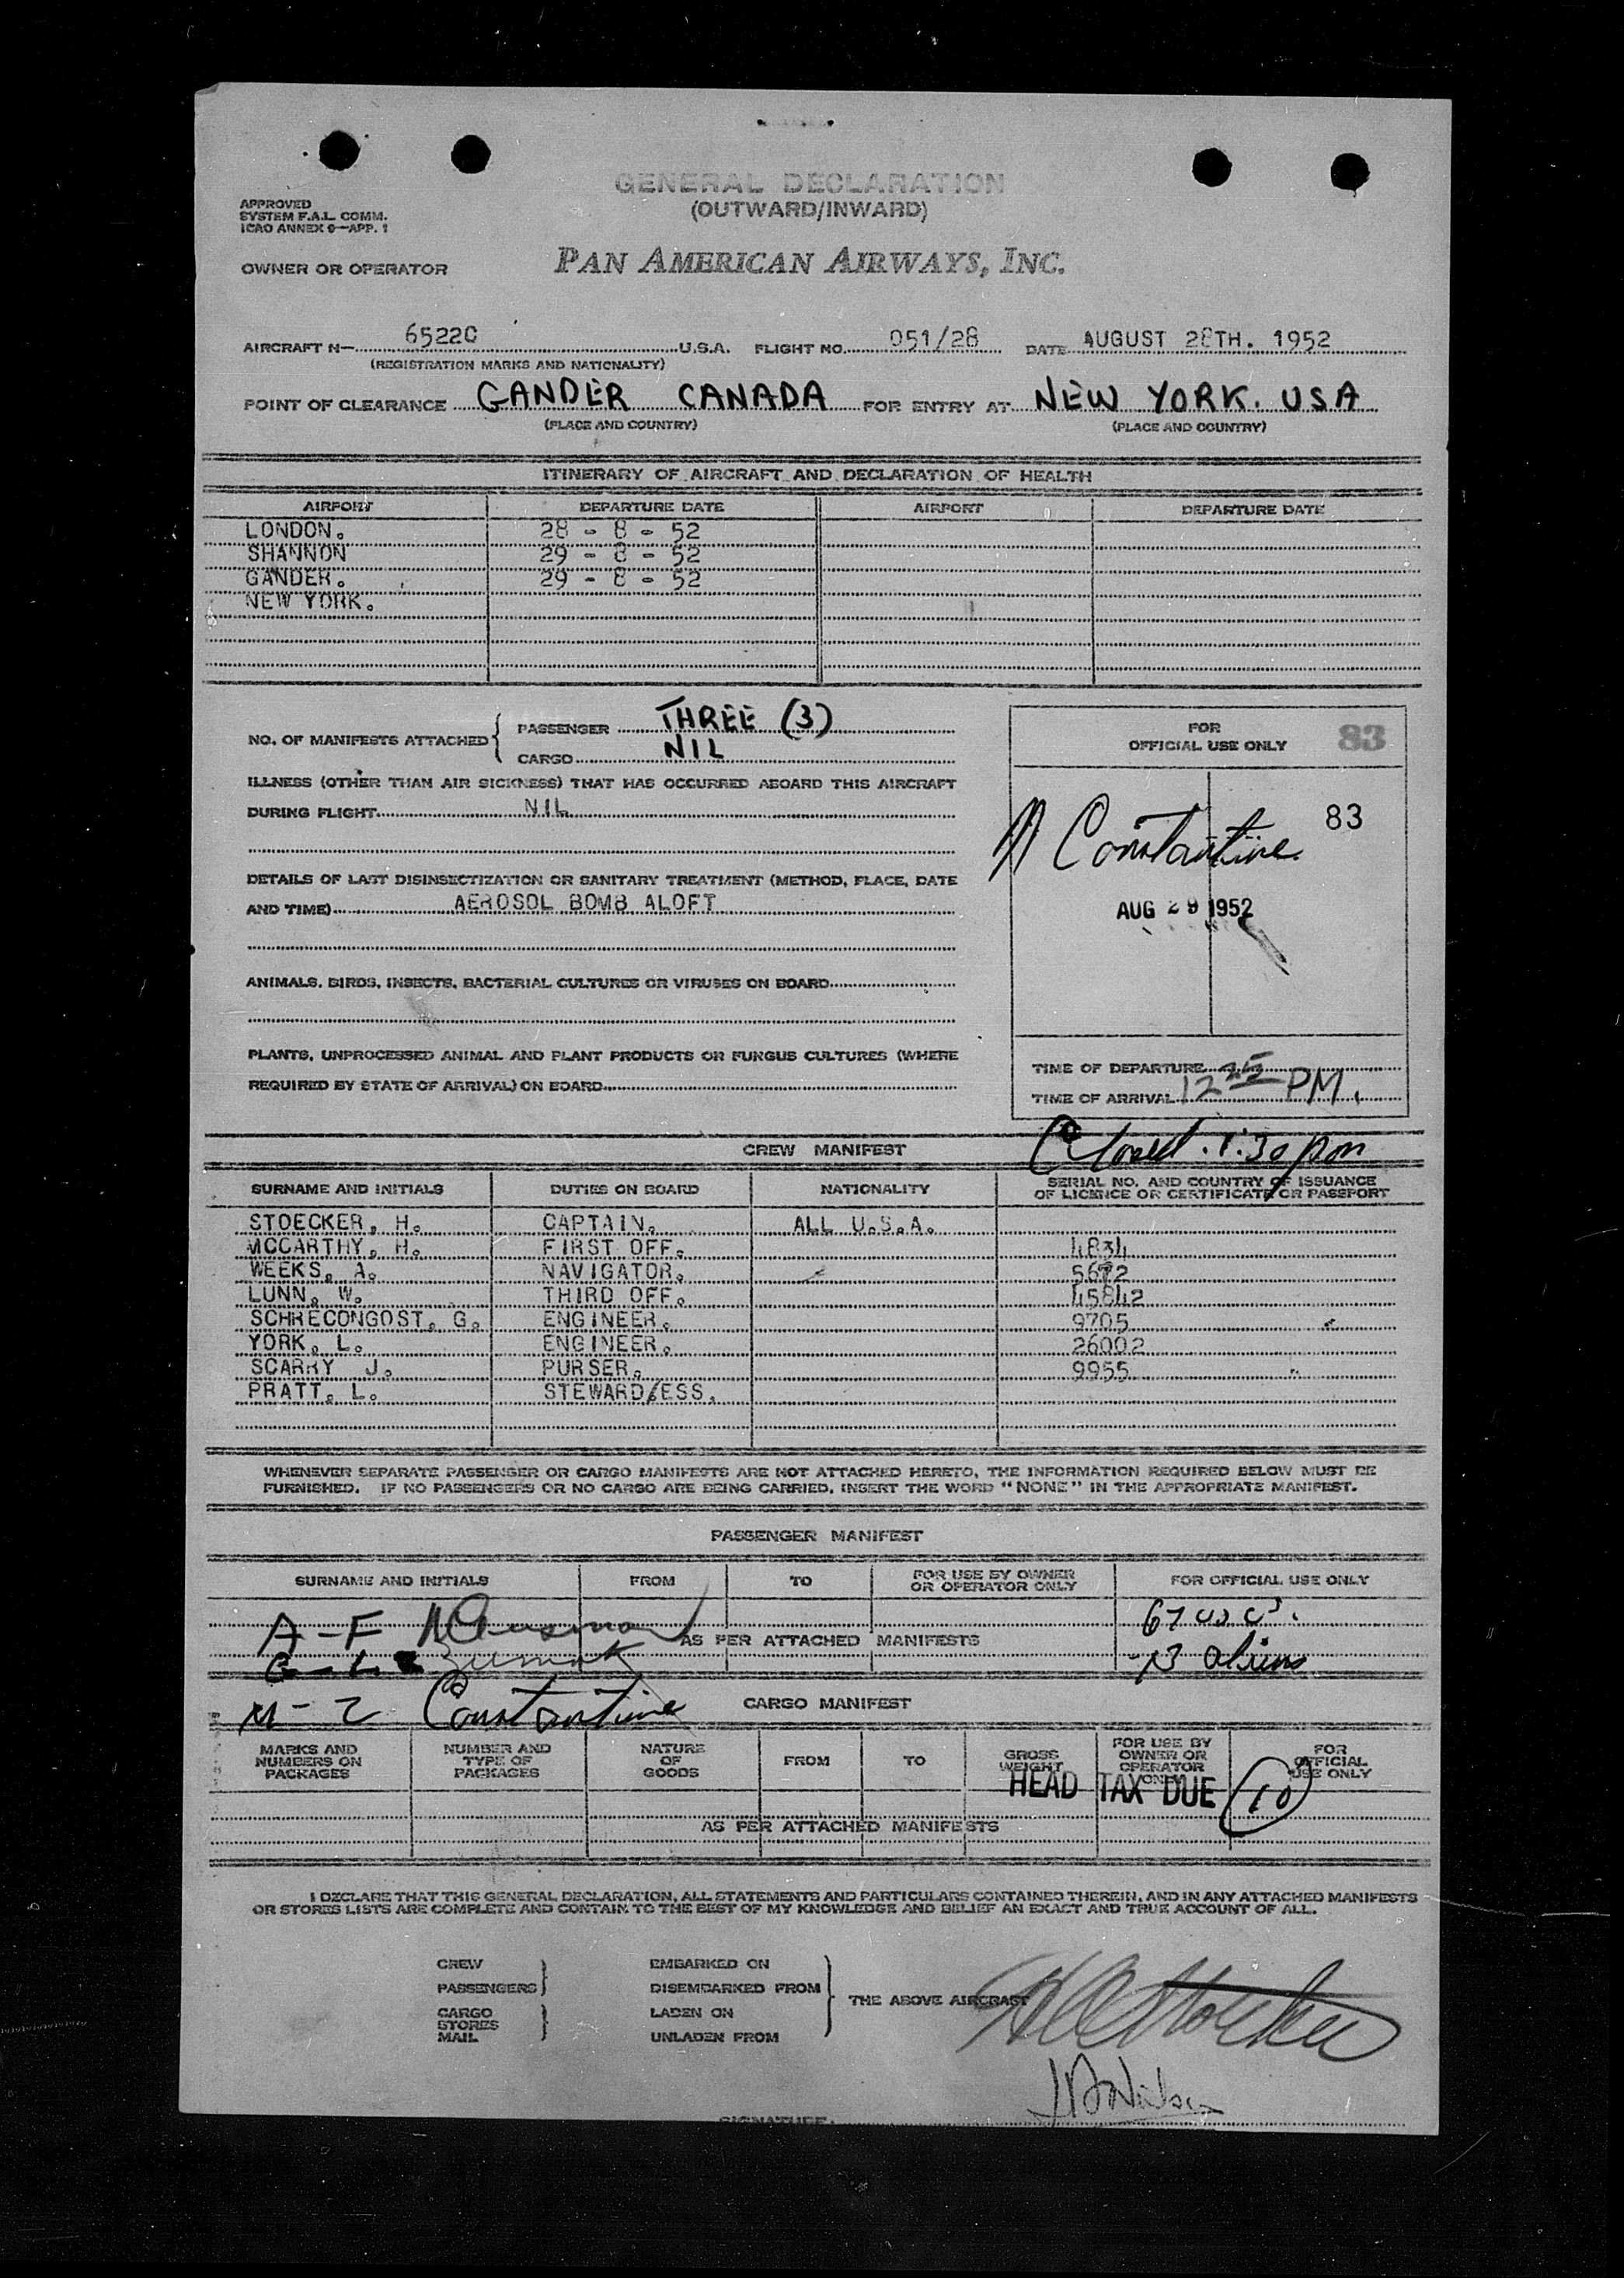 GENERAL DECLARATION
(OUTWARD/INWARD)
APPROVED
SYSTEM F.A.L. COMM.
ICAO ANNEX 9—APP. 1
OWNER OR OPERATOR PAN AMERICAN AIRWAYS, INC.
AIRCRAFT N— 6522C U.S.A. FLIGHT NO. 051/28 DATE AUGUST 28TH. 1952
(REGISTRATION MARKS AND NATIONALITY)
POINT OF CLEARANCE GANDER CANADA FOR ENTRY AT NEW YORK. USA
(PLACE AND COUNTRY) (PLACE AND COUNTRY)
ITINERARY OF AIRCRAFT AND DECLARATION OF HEALTH
AIRPORT DEPARTURE DATE AIRPORT DEPARTURE DATE
LONDON. 28 - 8 - 52
SHANNON 29 - 8 - 52
GANDER. 29 - 8 - 52
NEW YORK.
NO. OF MANIFESTS ATTACHED { PASSENGER THREE (3)
CARGO NIL
ILLNESS (OTHER THAN AIR SICKNESS) THAT HAS OCCURRED ABOARD THIS AIRCRAFT
DURING FLIGHT NIL
DETAILS OF LAST DISINSECTIZATION OR SANITARY TREATMENT (METHOD, PLACE, DATE
AND TIME) AEROSOL BOMB ALOFT
ANIMALS, BIRDS, INSECTS, BACTERIAL CULTURES OR VIRUSES ON BOARD
PLANTS, UNPROCESSED ANIMAL AND PLANT PRODUCTS OR FUNGUS CULTURES (WHERE
REQUIRED BY STATE OF ARRIVAL) ON BOARD
FOR
OFFICIAL USE ONLY 83
83
Constantine
AUG 29 1952
TIME OF DEPARTURE
TIME OF ARRIVAL 12 25 PM.
Closed. 1:30 pm
CREW MANIFEST
SURNAME AND INITIALS DUTIES ON BOARD NATIONALITY SERIAL NO. AND COUNTRY OF ISSUANCE
OF LICENCE OR CERTIFICATE OR PASSPORT
STOECKER, H. CAPTAIN. ALL U.S.A.
MCCARTHY, H. FIRST OFF. 4834
WEEKS, A. NAVIGATOR. 5672
LUNN, W. THIRD OFF. 45842
SCHRECONGOST, G. ENGINEER. 9705
YORK, L. ENGINEER. 26002
SCARRY J. PURSER. 9955
PRATT, L. STEWARD/ESS.
WHENEVER SEPARATE PASSENGER OR CARGO MANIFESTS ARE NOT ATTACHED HERETO, THE INFORMATION REQUIRED BELOW MUST BE
FURNISHED. IF NO PASSENGERS OR NO CARGO ARE BEING CARRIED, INSERT THE WORD "NONE" IN THE APPROPRIATE MANIFEST.
PASSENGER MANIFEST
SURNAME AND INITIALS FROM TO FOR USE BY OWNER
OR OPERATOR ONLY FOR OFFICIAL USE ONLY
A-F
67
AS PER ATTACHED MANIFESTS
G-L
aliens
M-Z Constantine
CARGO MANIFEST
MARKS AND
NUMBERS ON
PACKAGES
NUMBER AND
TYPE OF
PACKAGES
NATURE
OF
GOODS
FROM
TO
GROSS
WEIGHT
FOR USE BY
OWNER OR
OPERATOR
ONLY
FOR
OFFICIAL
USE ONLY
HEAD TAX DUE 10
AS PER ATTACHED MANIFESTS
I DECLARE THAT THIS GENERAL DECLARATION, ALL STATEMENTS AND PARTICULARS CONTAINED THEREIN, AND IN ANY ATTACHED MANIFESTS
OR STORES LISTS ARE COMPLETE AND CONTAIN TO THE BEST OF MY KNOWLEDGE AND BELIEF AN EXACT AND TRUE ACCOUNT OF ALL.
CREW EMBARKED ON
PASSENGERS DISEMBARKED FROM
THE ABOVE AIRCRAFT
CARGO LADEN ON
STORES
MAIL UNLADEN FROM
SIGNATURE: